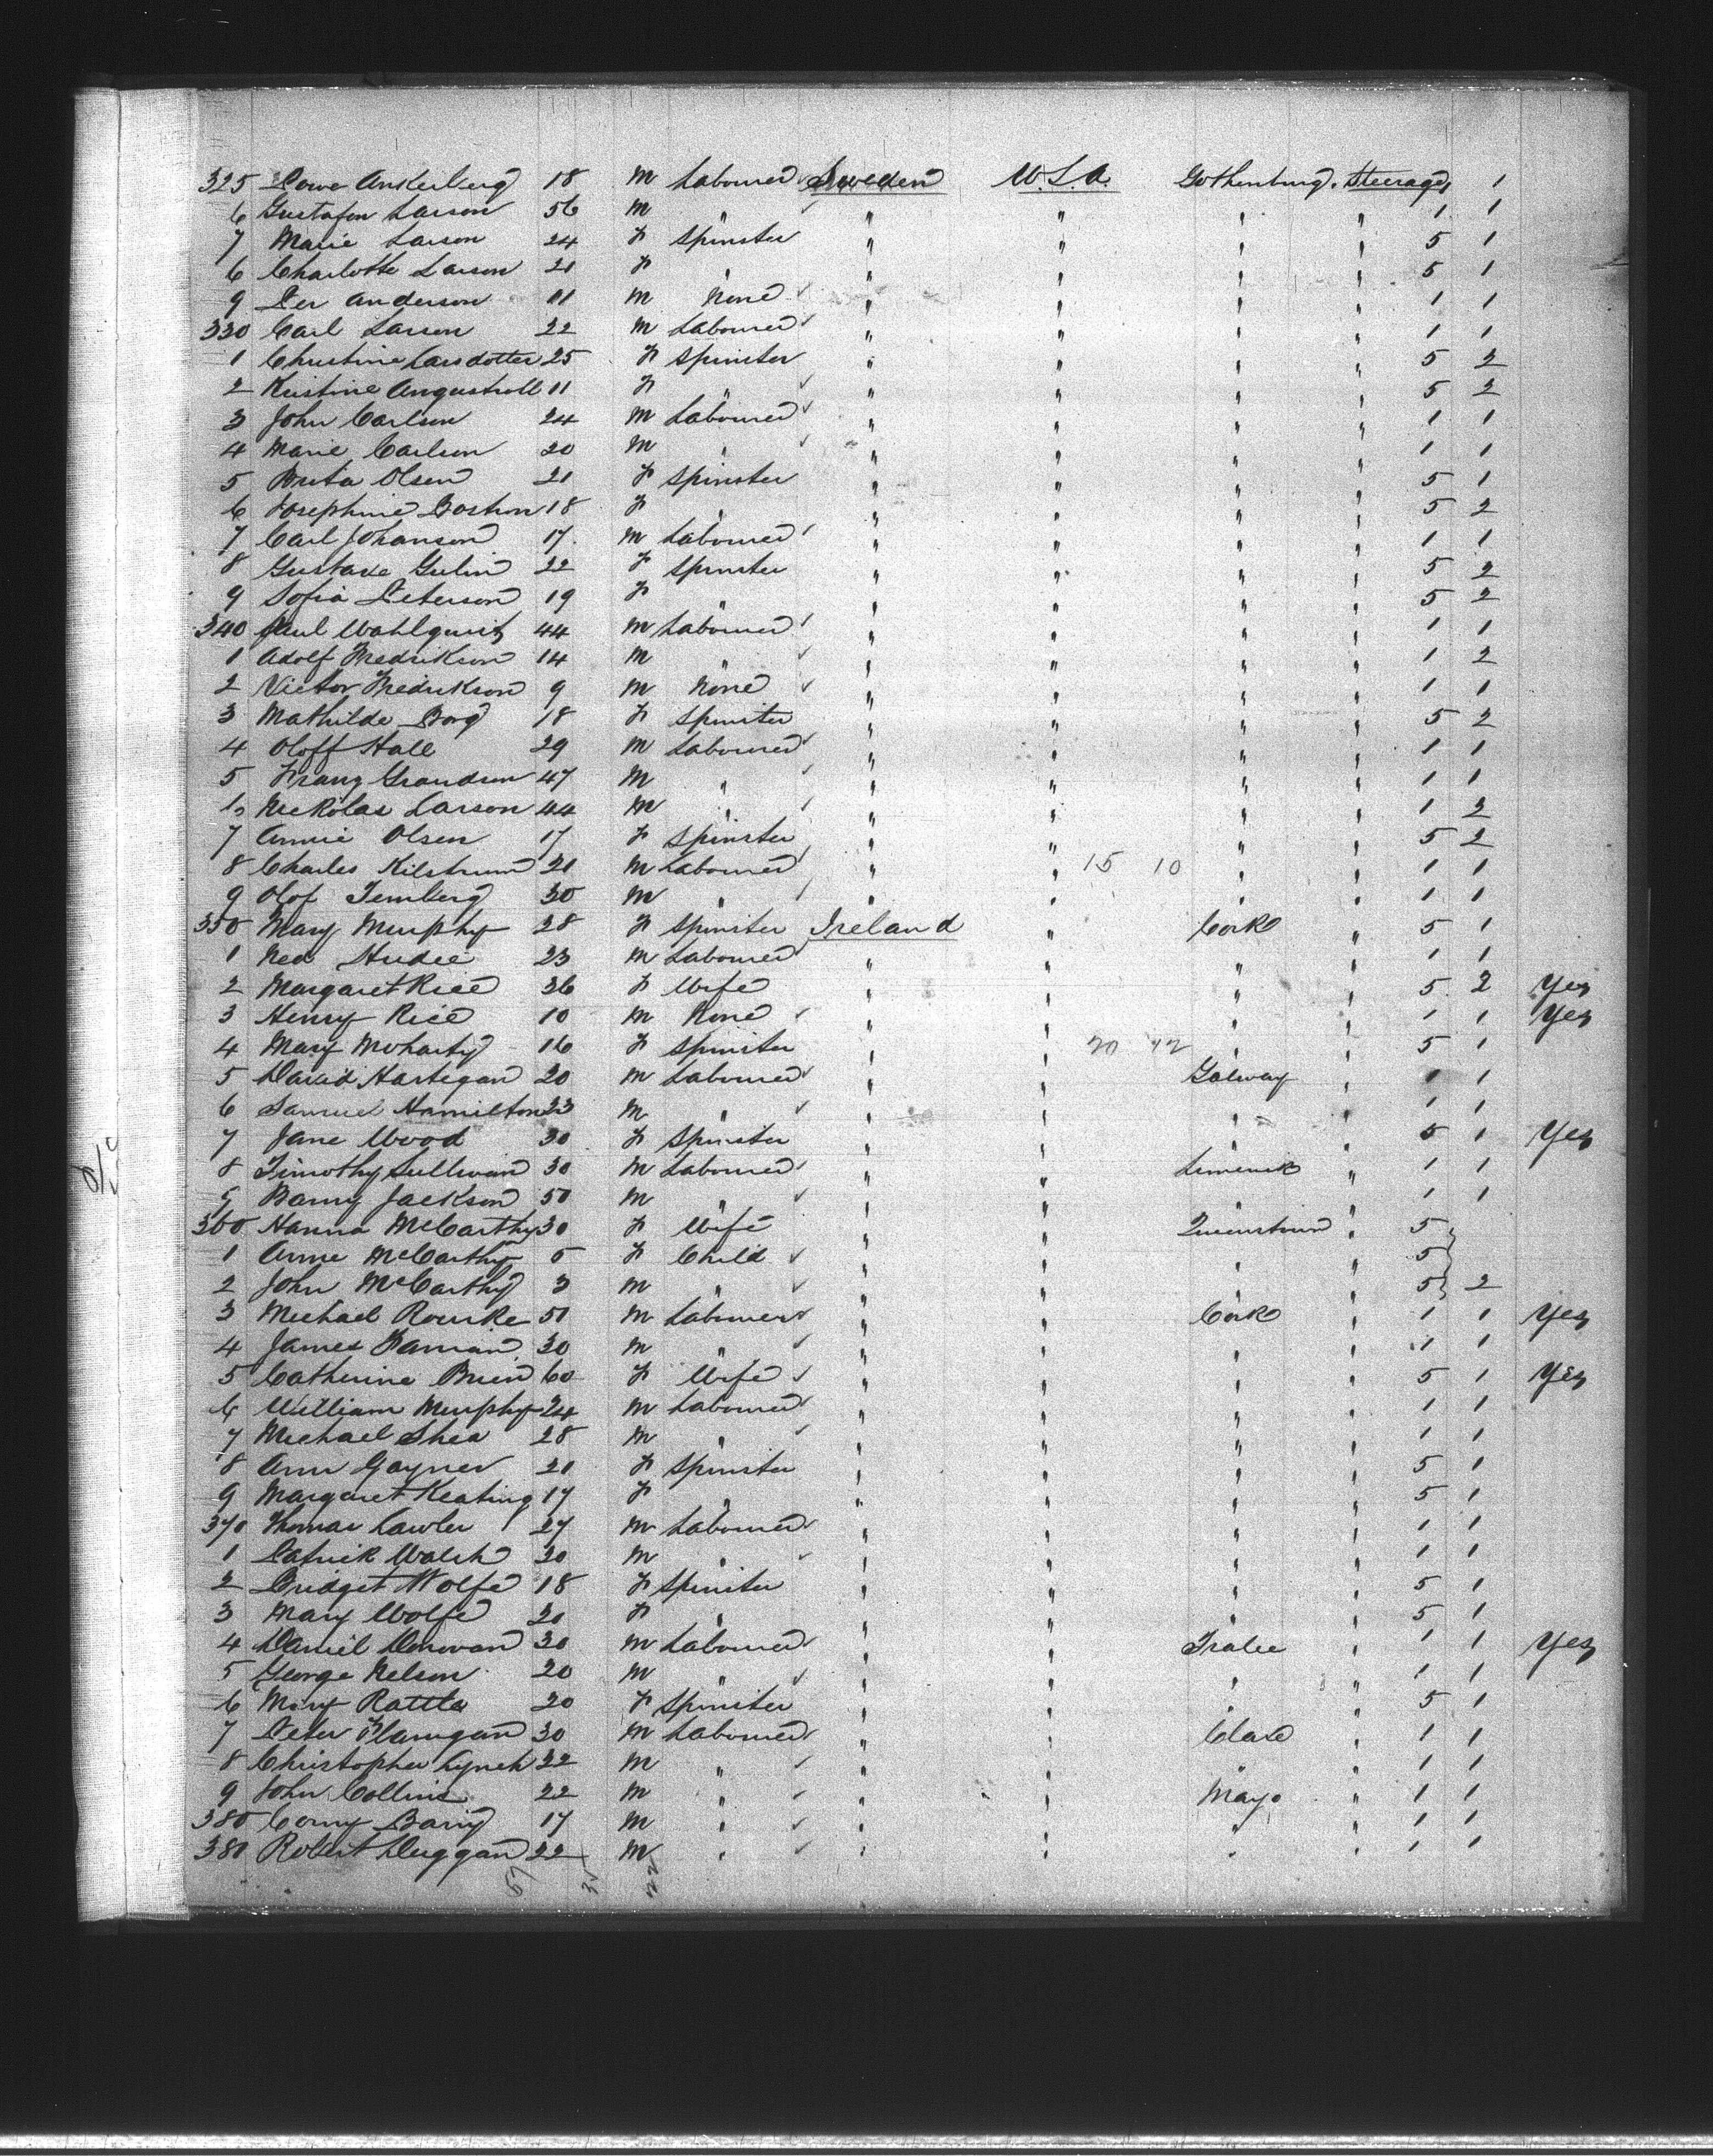 325 Ankerberg 18 M Labourer Sweden U.S.A. Gothenburg. Steerage, 1
6 Gustafon Larson 56 M " " " " " 1 1
7 Marie Larson 24 F Spinster " " " " 5 1
6 Charlotte Larson 21 F " " " " " 5 1
9 Per Anderson 11 M None " " " " 1 1
330 Carl Larson 22 M Labourer " " " " 1 1
1 Christine Larsdotter 25 F Spinster " " " " 5 2
2 Kristine 11 F " " " " " 5 2
3 John Carlson 24 M Labourer " " " " 1 1
4 Marie Carlson 20 M " " " " " 1 1
5 Brita Olsen 21 F Spinster " " " " 5 1
6 Josephine Bostrom 18 F " " " " " 5 2
7 Carl Johanson 17 M Labourer " " " " 1 1
8 Gustave Gulin 22 F Spinster " " " " 5 2
9 Sofia Peterson 19 F " " " " " 5 2
340 Wahlquist 44 M Labourer " " " " 1 1
1 Adolf Fredrikson 14 M " " " " " 1 2
2 Victor Fredrikson 9 M None " " " " 1 1
3 Mathilde Borg 18 F Spinster " " " " 5 2
4 Oloff Hall 29 M Labourer " " " " 1 1
5 Franz Grandson 47 M " " " " " 1 1
6 Nickolas Larson 44 M " " " " " 1 2
7 Annie Olsen 17 F Spinster " " " " 5 2
8 Charles Kilstrum 21 M Labourer " " 15 10 " " 1 1
9 Olof Temberg 30 M " " " " " 1 1
350 Mary Murphy 28 F Spinster Ireland " Cork " 5 1
1 Ned 23 M Labourer " " " " 1 1
2 Margaret Rice 36 F Wife " " " " 5 2 Yes
3 Henry Rice 10 M None " " " " 1 1 Yes
4 Mary Moharty 16 F Spinster " " 20 42 " " 5 1
5 David Hartegan 20 M Labourer " " Galway " 1 1
6 Samuel Hamilton 23 M " " " " " 1 1
7 Jane Wood 30 F Spinster " " " " 5 1 Yes
8 Timothy Sullivan 30 M Labourer " " Limerick " 1 1
9 Barny Jackson 50 M " " " " " 1 1
360 Hanna McCarthy 30 F Wife " " Queenstown " 5
1 Anne McCarthy 5 F Child " " " " 5
2 John McCarthy 3 M " " " " " 5 2
3 Michael Rourke 51 M Labourer " " Cork " 1 1 Yes
4 James 30 M " " " " " 1 1
5 Catherine Brien 60 F Wife " " " " 5 1 Yes
6 William Murphy 24 M Labourer " " " " 1 1
7 Michael Shea 28 M " " " " " 1 1
8 Ann Gaynor 21 F Spinster " " " " 5 1
9 Margaret Keating 17 F " " " " " 5 1
370 Thomas Lawler 27 M Labourer " " " " 1 1
1 Patrick Walsh 30 M " " " " " 1 1
2 Bridget Wolfe 18 F Spinster " " " " 5 1
3 Mary Wolfe 20 F " " " " " 5 1
4 Daniel Donovan 30 M Labourer " " Tralee " 1 1 Yes
5 George Nelson 20 M " " " " " 1 1
6 Mary Rattla 20 F Spinster " " " " 5 1
7 Peter Flanigan 30 M Labourer " " Clare " 1 1
8 Christopher Lynch 22 M " " " " " 1 1
9 John Collins 22 M " " " Mayo " 1 1
380 Corny Barry 17 M " " " " " 1 1
381 Robert Duggan 22 M " " " " " 1 1